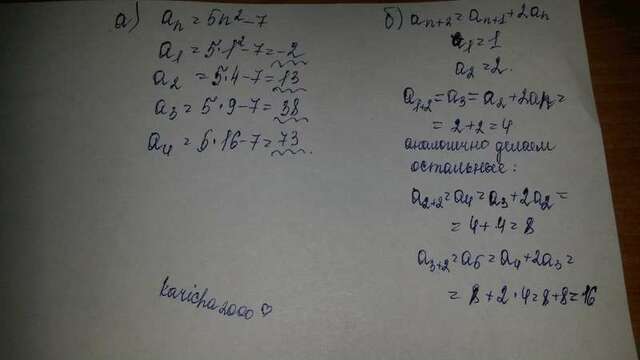 а) aₙ = 5n² - 7
a₁ = 5·1² - 7 = -2
a₂ = 5·4 - 7 = 13
a₃ = 5·9 - 7 = 38
a₄ = 5·16 - 7 = 73.
karicha2000♡
б) aₙ₊₂ = aₙ₊₁ + 2aₙ
a₁ = 1
a₂ = 2.
a₁₊₂ = a₃ = a₂ + 2a₁ =
= 2 + 2 = 4
аналогично делаем
остальные:
a₂₊₂ = a₄ = a₃ + 2a₂ =
= 4 + 4 = 8
a₃₊₂ = a₅ = a₄ + 2a₃ =
= 8 + 2·4 = 8 + 8 = 16